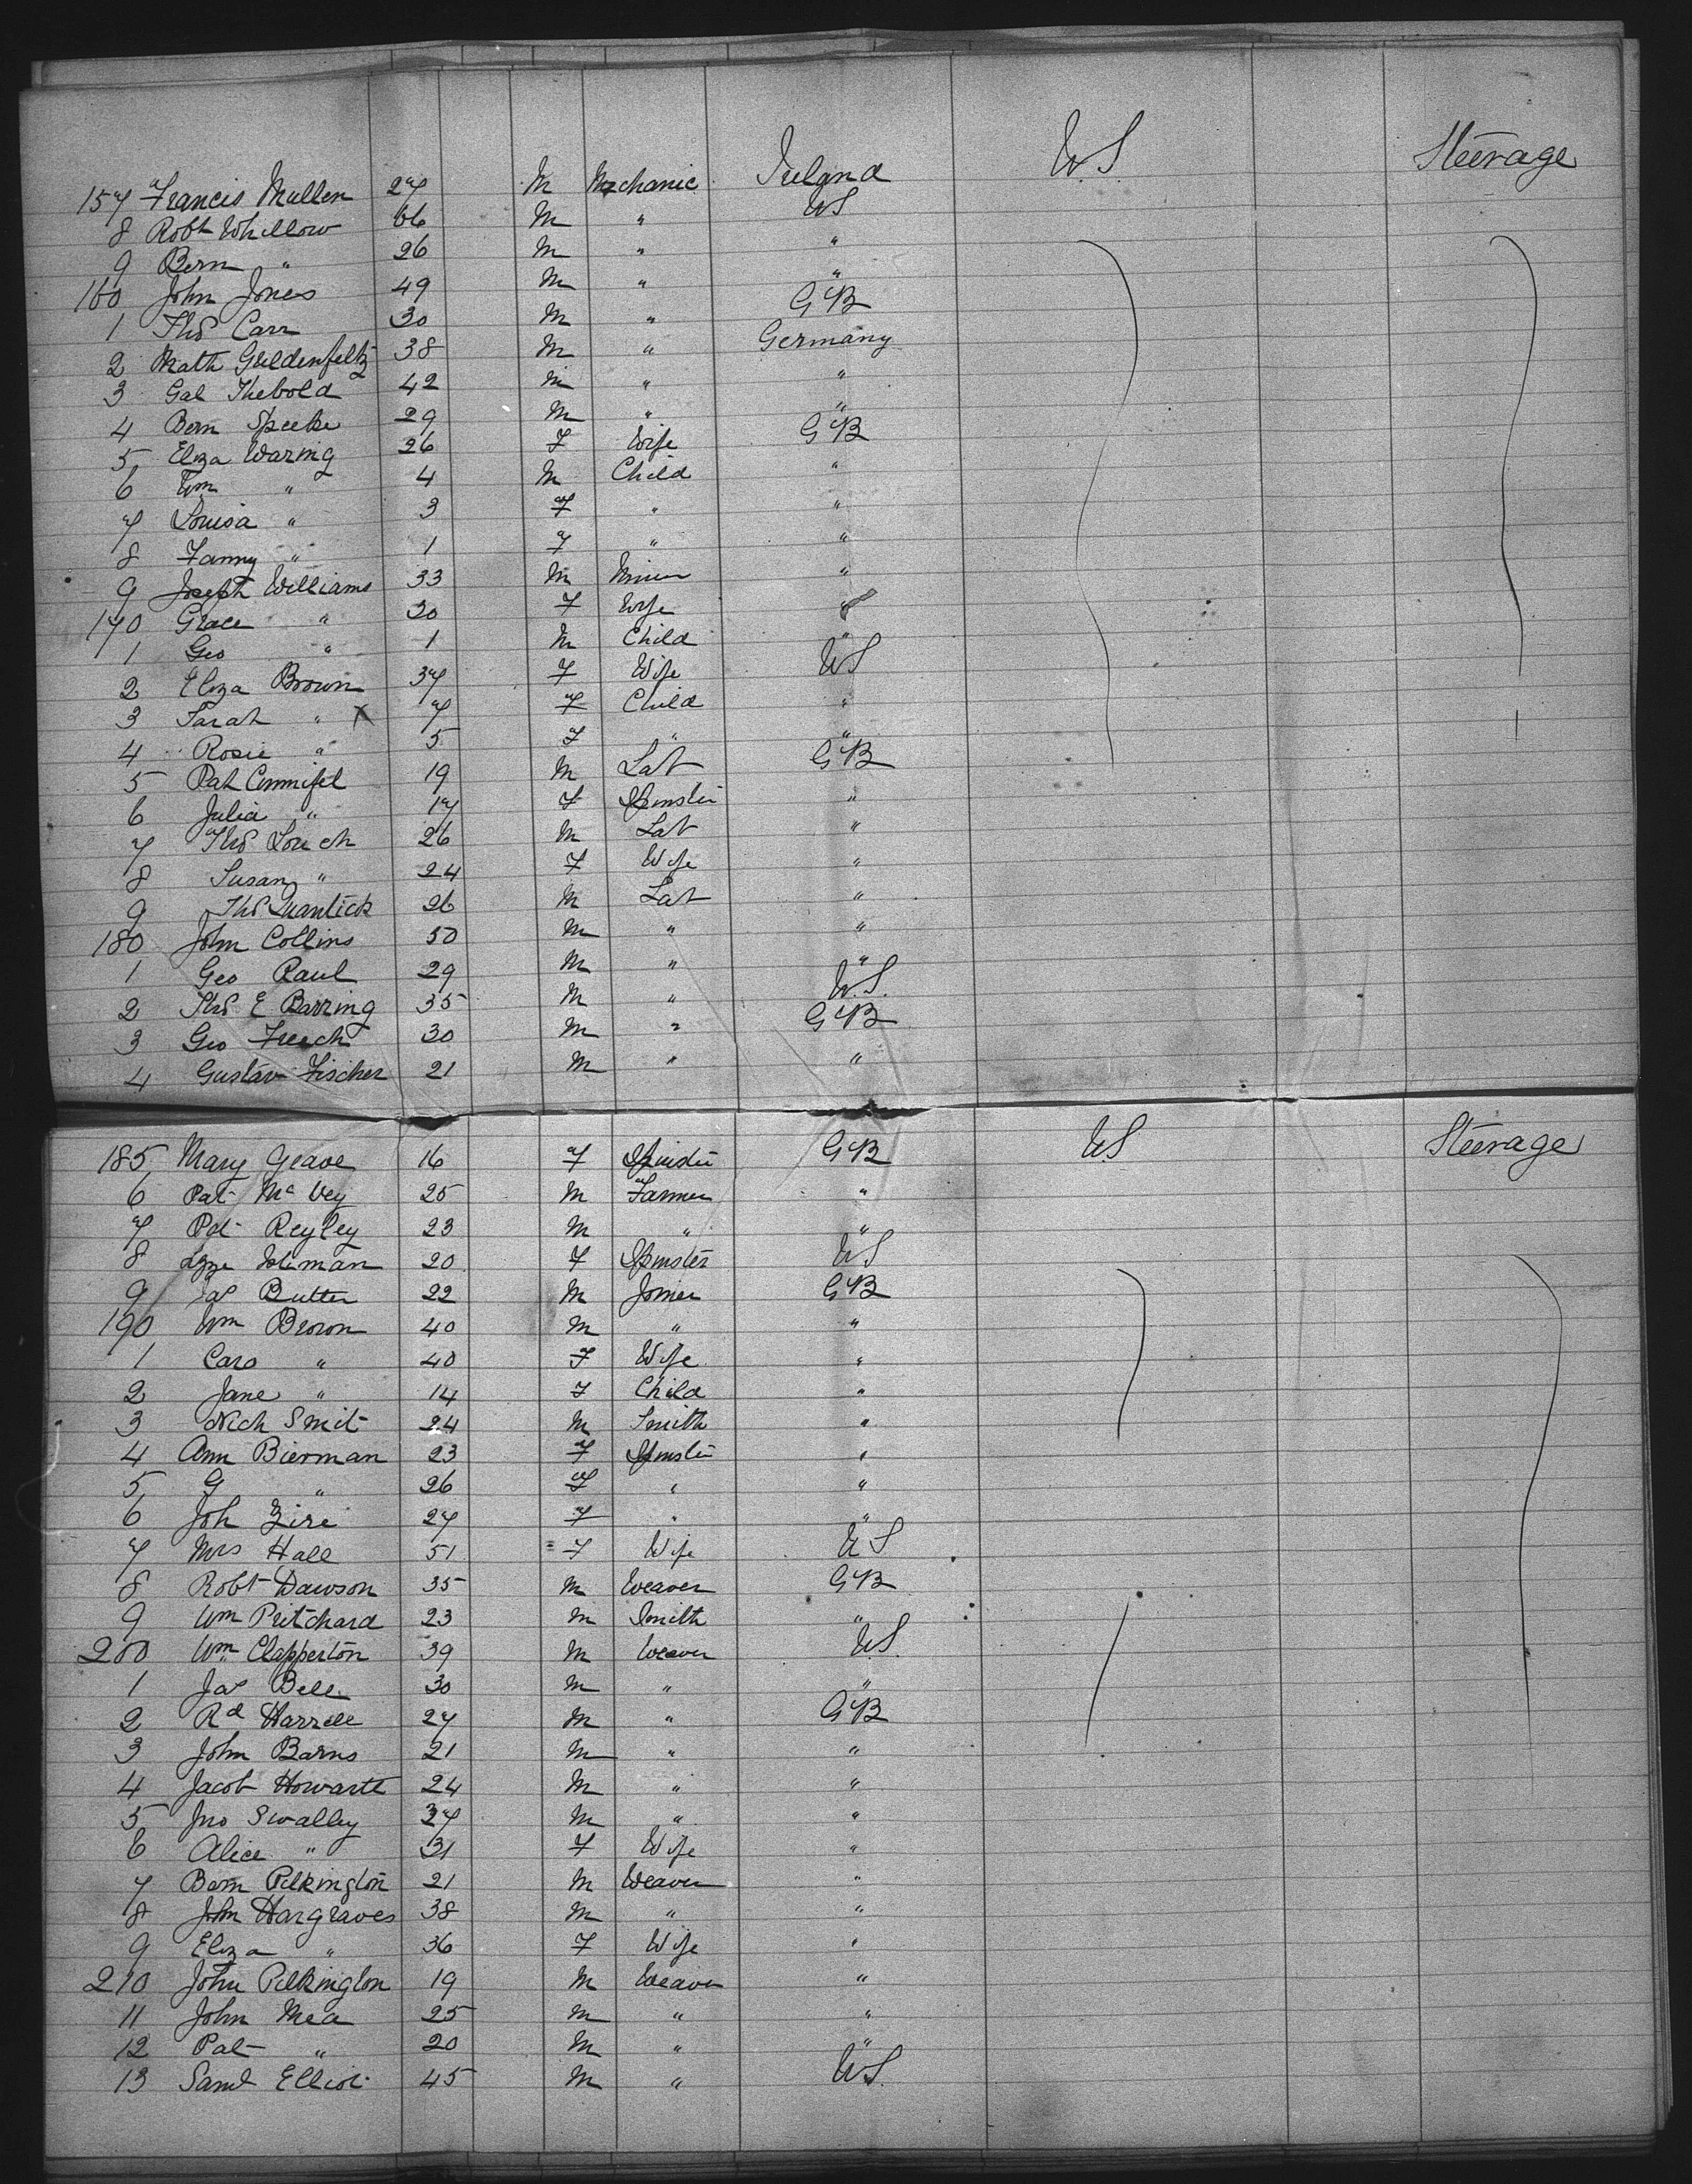 157 Francis Mullen 27 M Mechanic Ireland US Steerage
8 Robt Whellow 66 M " US
9 Bern " 26 M " "
160 John Jones 49 M " "
1 Thos Carr 30 M " GB
2 Math Guldenfeltz 38 M " Germany
3 Gab Thebold 42 M " "
4 Bern Speeke 29 M " "
5 Eliza Waring 26 F Wife GB
6 Wm " 4 M Child "
7 Louisa " 3 F " "
8 Fanny " 1 F " "
9 Joseph Williams 33 M Miner "
170 Grace " 30 F Wife "
1 Geo " 1 M Child "
2 Eliza Brown 37 F Wife US
3 Sarah " X 7 F Child "
4 Rosie " 5 F " "
5 Pat 19 M Lab GB
6 Julia " 17 F Spinster "
7 Thos Louch 26 M Lab "
8 Susan " 24 F Wife "
9 Thos Quantick 26 M Lab "
180 John Collins 50 M " "
1 Geo Raul 29 M " "
2 Thos E Barring 35 M " U.S.
3 Geo Freech 30 M " GB
4 Gustav Fischer 21 M " "
185 Mary Geave 16 F Spinster GB US Steerage
6 Pat McVey 25 M Farmer "
7 Pat Reyley 23 M " "
8 20 F Spinster US
9 Jas Butter 22 M Joiner GB
190 Wm Brown 40 M " "
1 Caro " 40 F Wife "
2 Jane " 14 F Child "
3 Nich Smit 24 M Smith "
4 Ann Bierman 23 F Spinster "
5 G " 26 F " "
6 Joh Ziri 27 F " "
7 Mrs Hall 51 F Wife US
8 Robt Dawson 35 M Weaver GB
9 Wm Pritchard 23 M Smith "
200 Wm Clapperton 39 M Weaver US.
1 Jas Bell 30 M " "
2 Rd Harrall 27 M " GB
3 John Barns 21 M " "
4 Jacob Howarth 24 M " "
5 Jno Swalley 37 M " "
6 Alice " 31 F Wife "
7 Barn Pilkington 21 M Weaver "
8 John Hargraves 38 M " "
9 Eliza " 36 F Wife "
210 John Pilkington 19 M Weaver "
11 John Mea 25 M " "
12 Pat " 20 M " "
13 Saml Elliot 45 M " US.